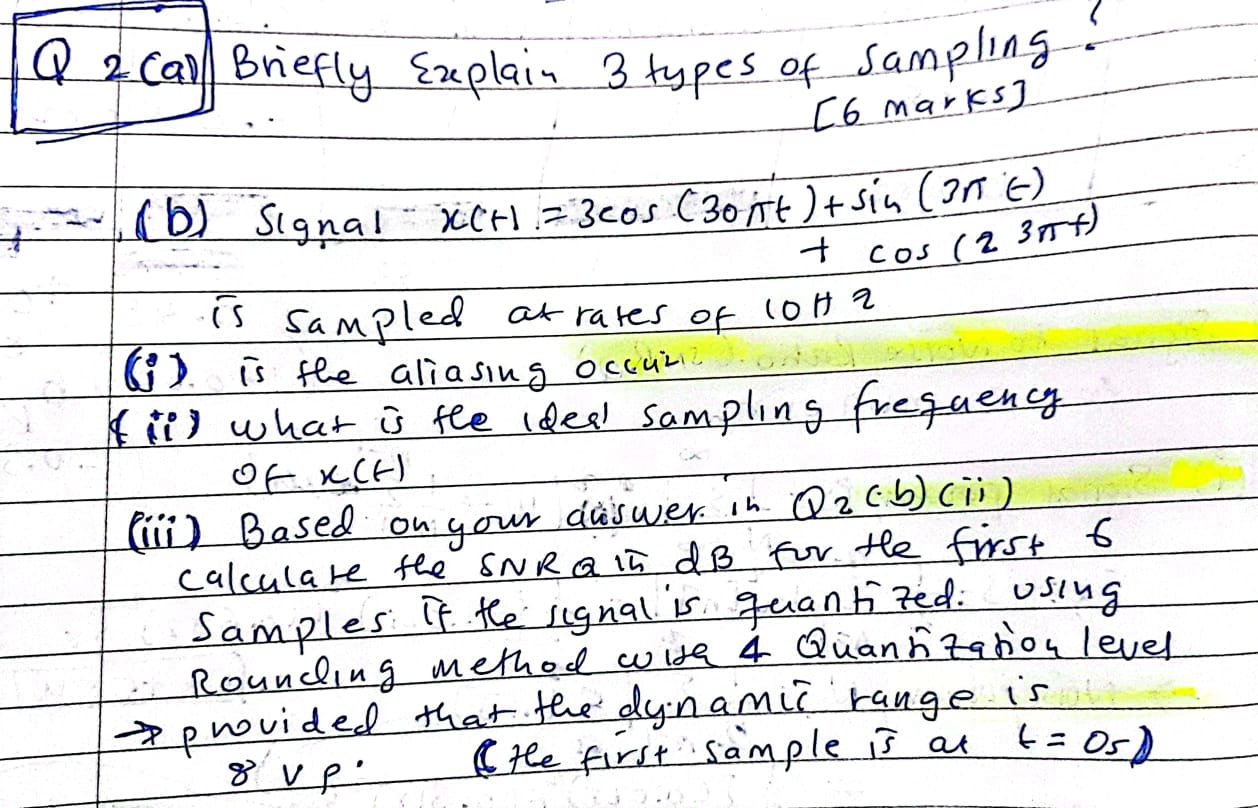 Q 2 (a) Briefly Explain 3 types of Sampling?
[6 marks]
(b) Signal x(t) = 3cos (30πt) + sin (3π t)
+ cos (2 3πt)
is sampled at rates of 10Hz
(i) is the aliasing occur
(ii) what is the ideal sampling frequency
of x(t)
(iii) Based on your answer in Q2 (b) (ii)
calculate the SNRQ in dB for the first 6
Samples if the signal is quantized using
Rounding method with 4 Quantization level
→ provided that the dynamic range is
8 Vp. (the first sample is at t = 0s)